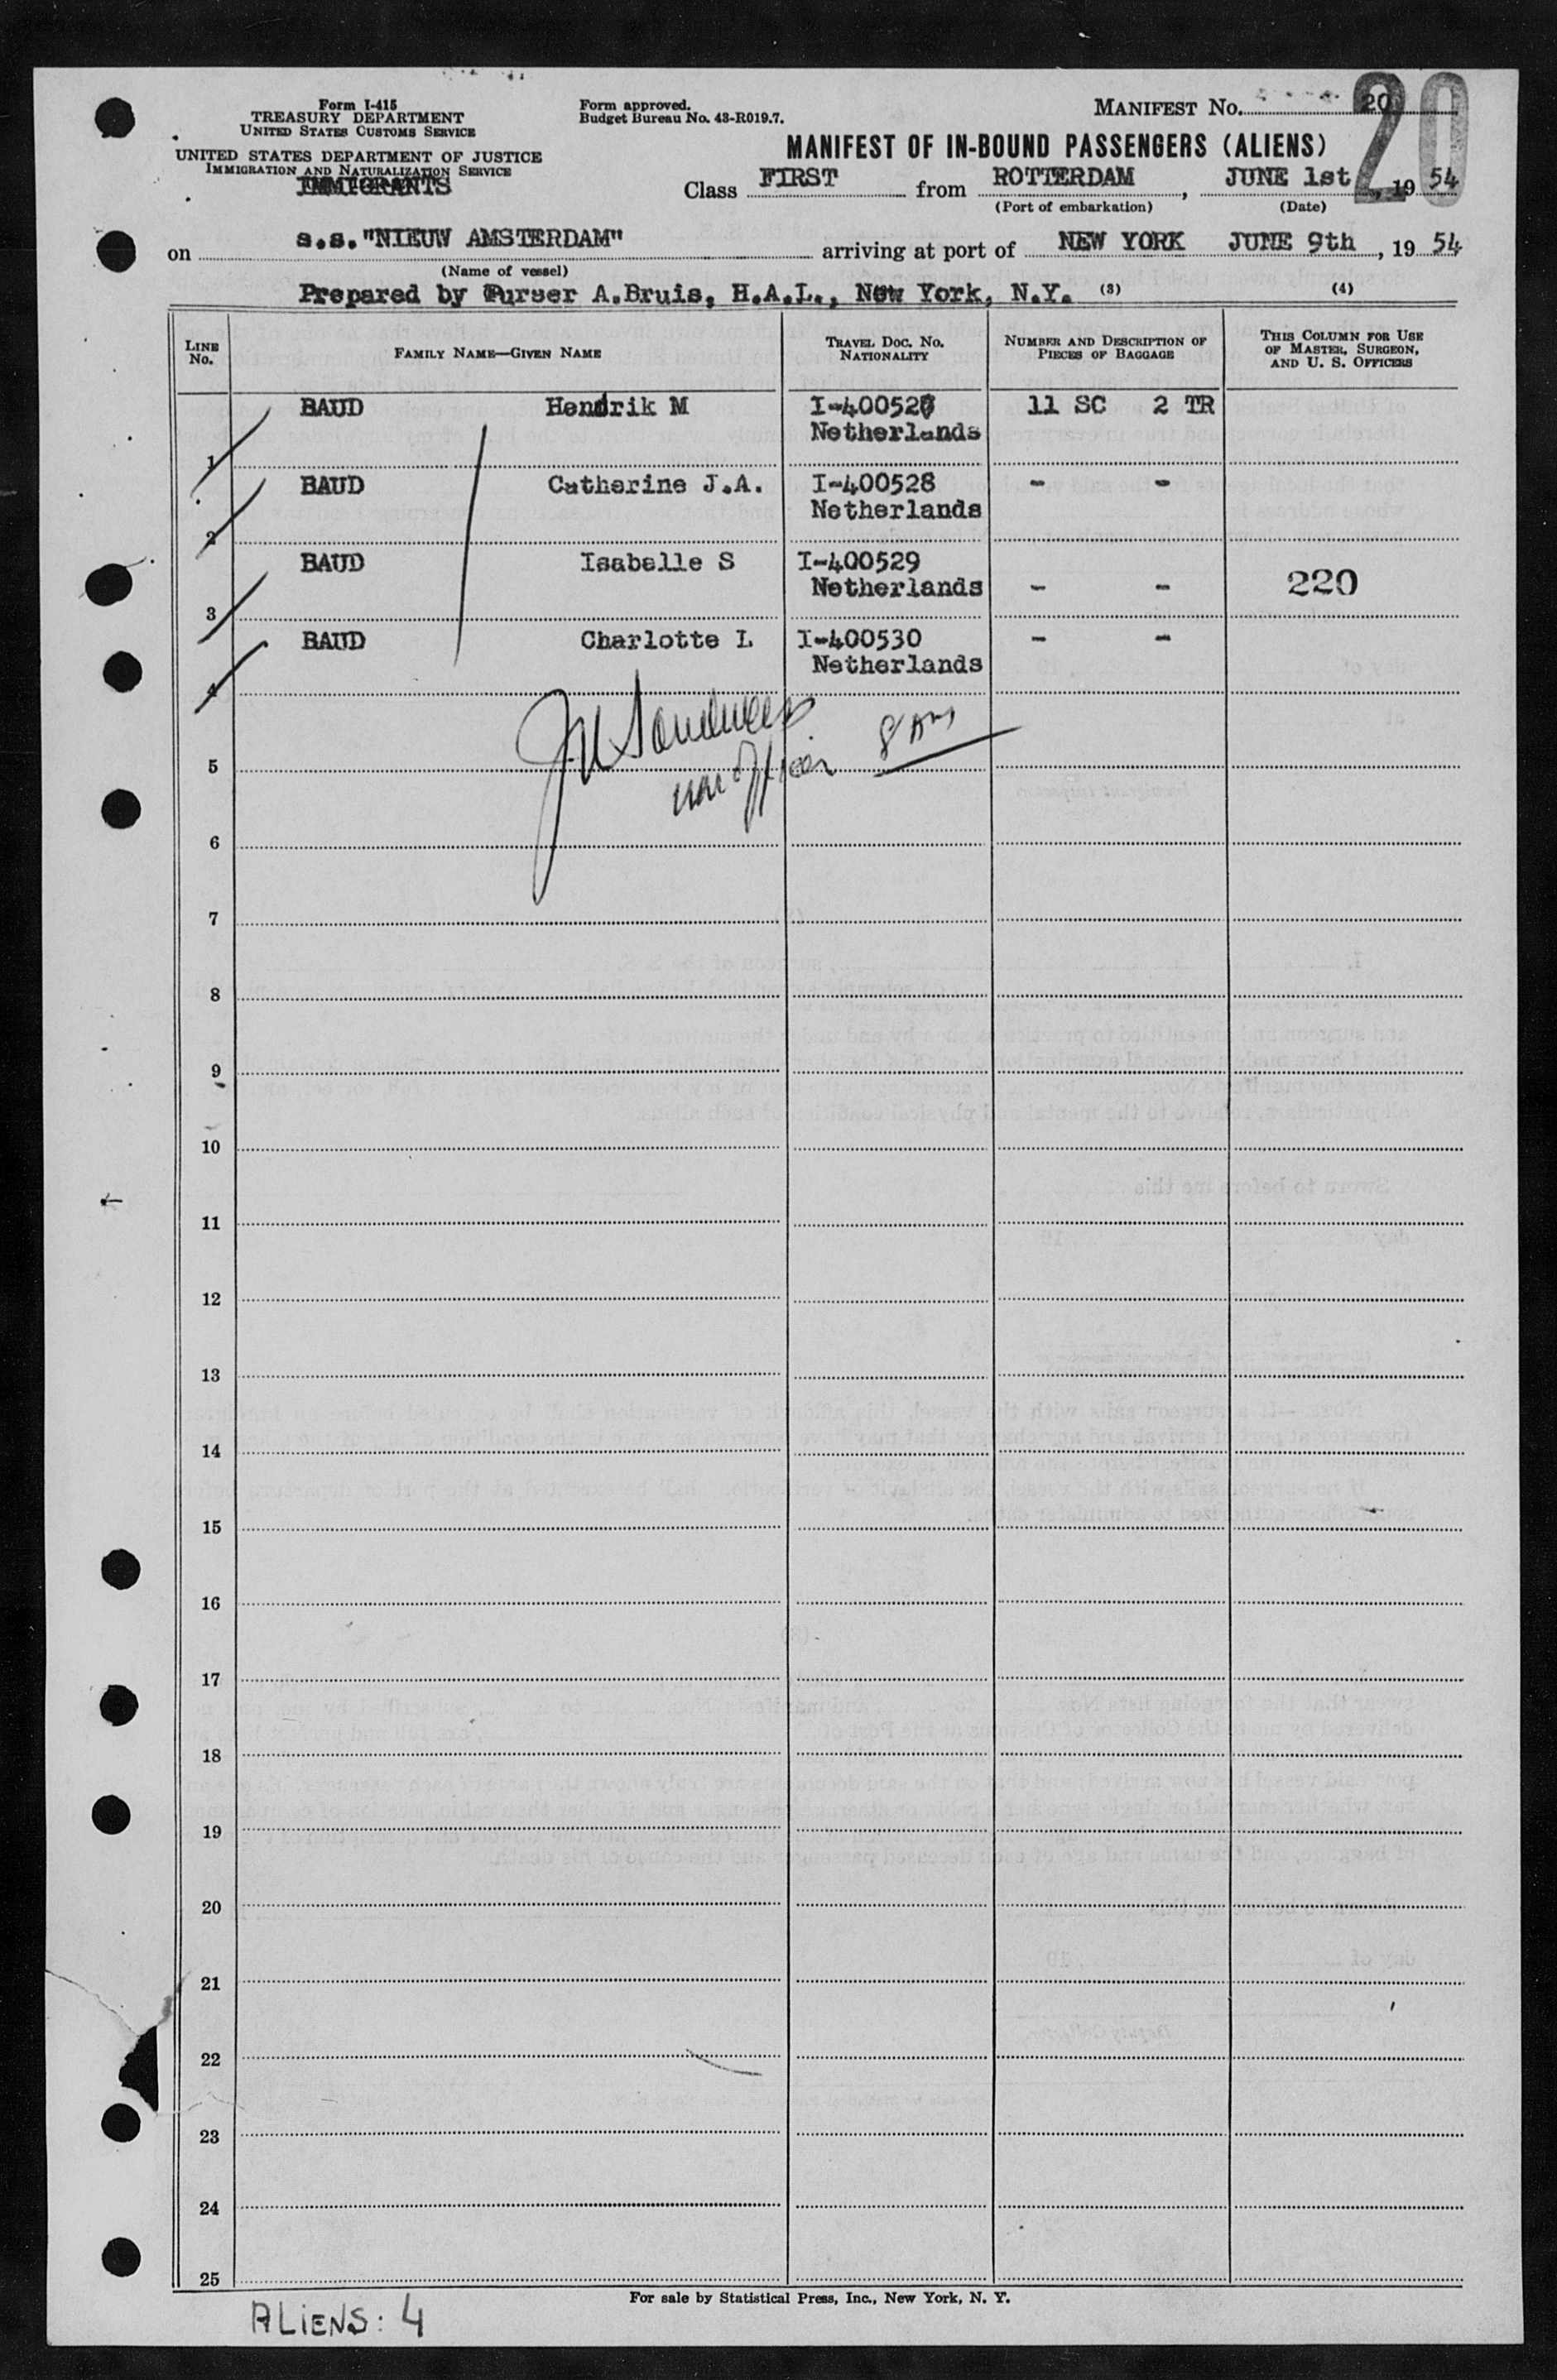 Form I-415
TREASURY DEPARTMENT
UNITED STATES CUSTOMS SERVICE
UNITED STATES DEPARTMENT OF JUSTICE
IMMIGRATION AND NATURALIZATION SERVICE
IMMIGRANTS
Form approved.
Budget Bureau No. 43-R019.7.
MANIFEST No. 20
20
MANIFEST OF IN-BOUND PASSENGERS (ALIENS)
Class FIRST from ROTTERDAM, JUNE 1st, 19 54
(Port of embarkation) (Date)
on s.s."NIEUW AMSTERDAM" arriving at port of NEW YORK JUNE 9th, 19 54
(Name of vessel)
Prepared by Purser A.Bruis, H.A.L., New York, N.Y. (3) (4)
LINE No. FAMILY NAME—GIVEN NAME TRAVEL DOC. No. NATIONALITY NUMBER AND DESCRIPTION OF PIECES OF BAGGAGE THIS COLUMN FOR USE OF MASTER, SURGEON, AND U. S. OFFICERS
1 BAUD Hendrik M I-400527 11 SC 2 TR
Netherlands
2 BAUD Catherine J.A. I-400528 - -
Netherlands
3 BAUD Isabelle S I-400529
Netherlands - - 220
4 BAUD Charlotte L I-400530 - -
Netherlands
5
6
7
8
9
10
11
12
13
14
15
16
17
18
19
20
21
22
23
24
25
For sale by Statistical Press, Inc., New York, N. Y.
ALIENS: 4